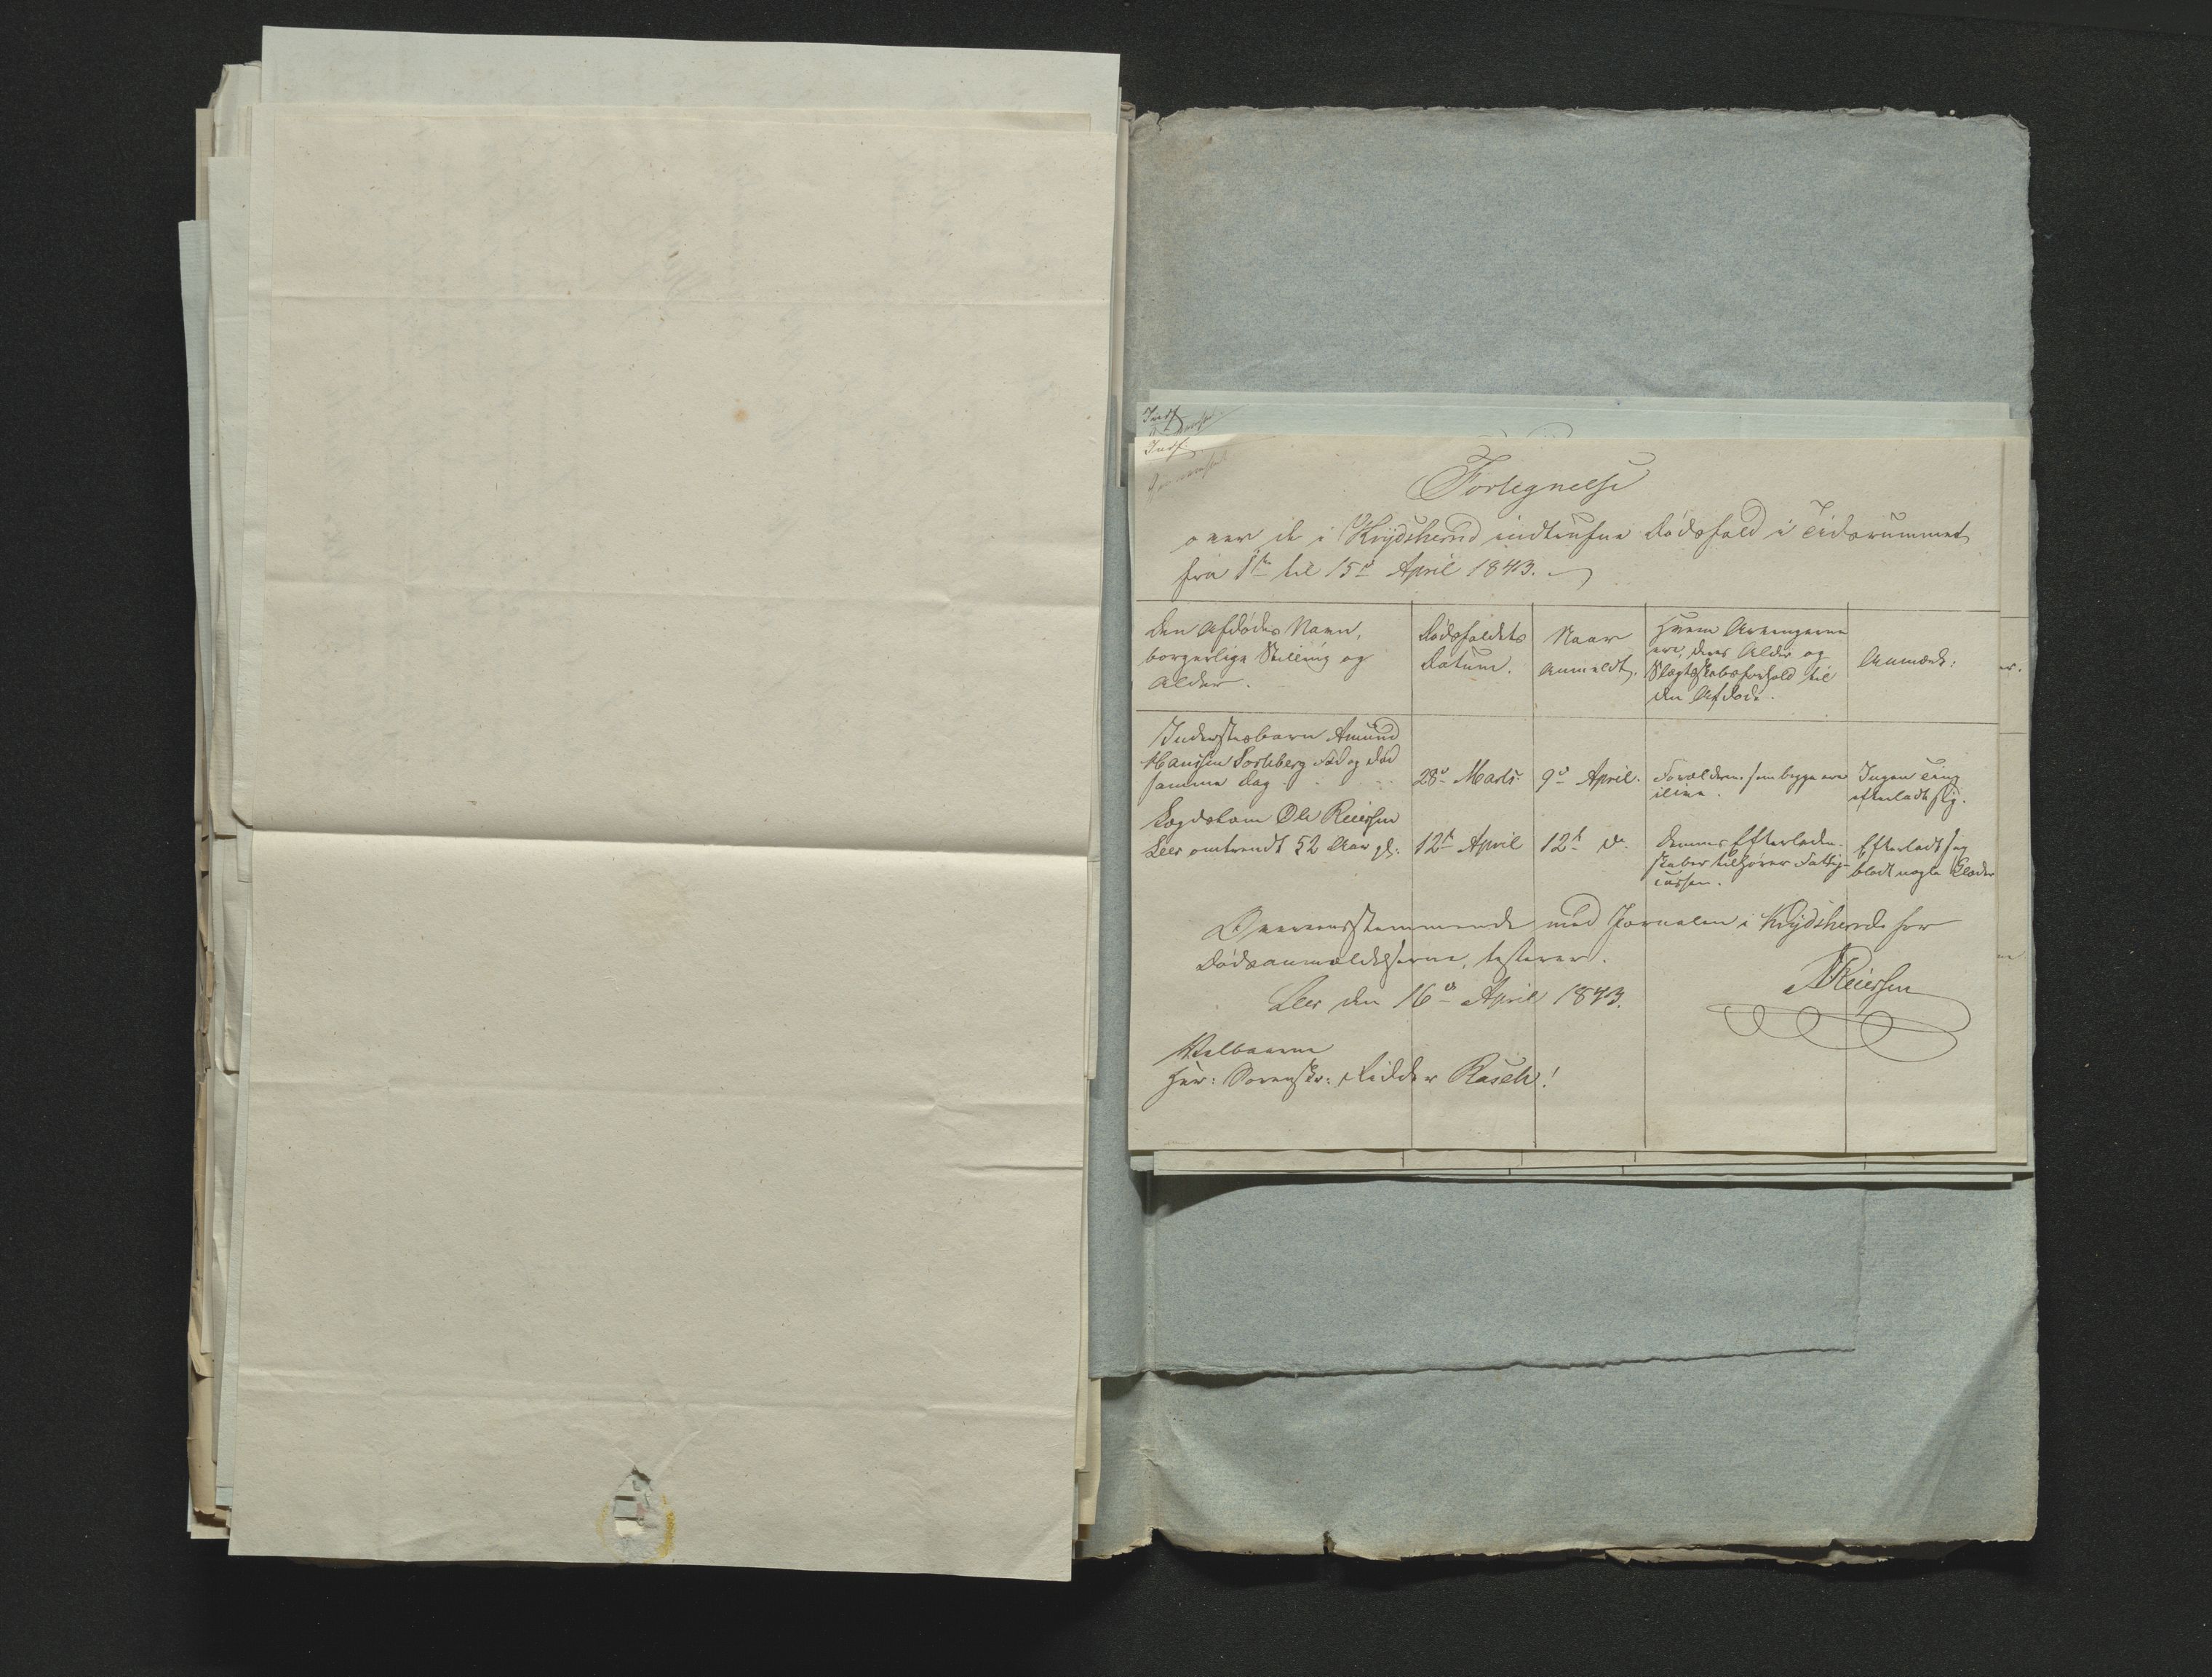 Indf.
Indf.
Fortegnelse
over de i Krydsherred indtrufne Dødsfald i Tidsrummet
fra 1ste til 15de April 1843.
Den Afdødes Navn,
borgerlige Stilling og
Alder.
Dødsfaldets
Datum.
Naar
Anmeldt.
Hvem Arvingerne
ere, deres Alder og
Slægtskabsforhold til
den Afdøde.
Anmærk:
Inderstesbarn Amund
Hanssen Sorteberg Fød og Død
samme Dag.
28de Marts
9de April.
Forældrene som begge ere
ilive.
Ingen Ting
efterladt sig.
Lægdslem Ole Reiersen
Leer omtrendt 52 Aar gl.
12te April
12te d.
Dennes Efterladen-
skaber tilhører Fattig-
cassen.
Efterladt sig
blodt nogle Klæder
Overensstemmende med Jornalen i Krydsherred for
Dødsanmeldelserne, testerer.
Leer den 16de April 1843.
Reiersen
Velbaarne
Herr: Sorenskr: Ridder Rasch!